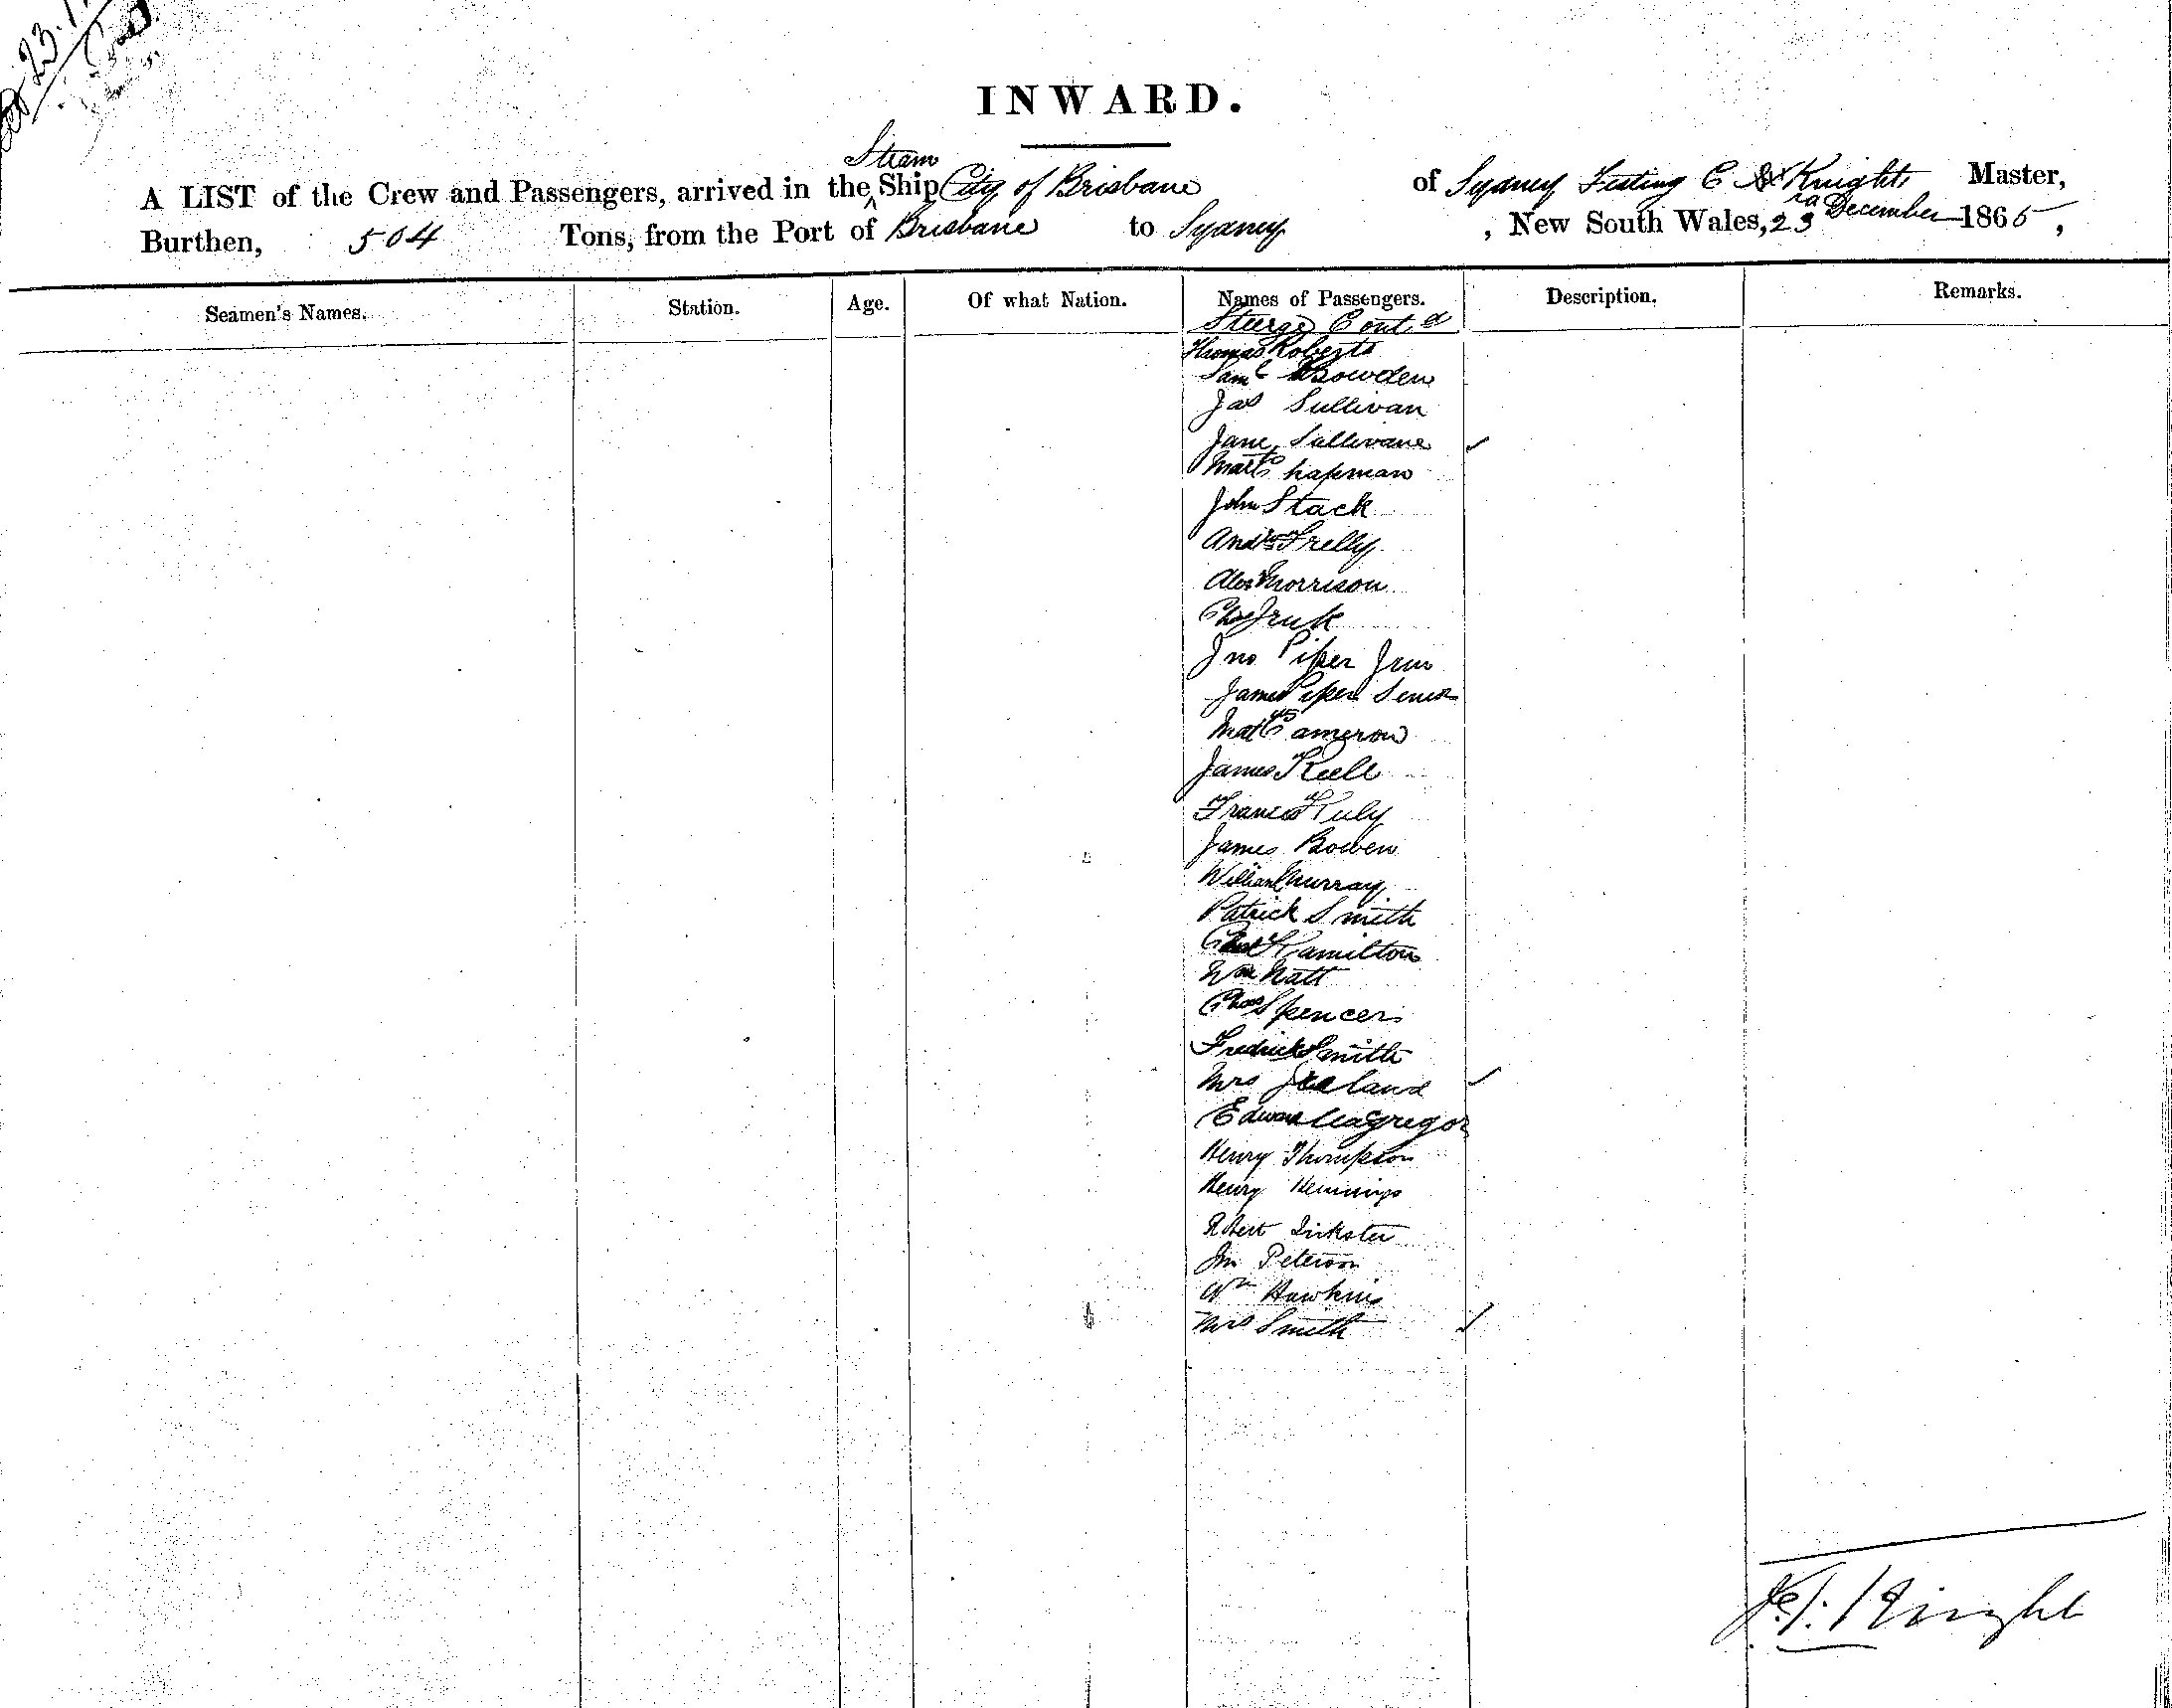 23.1
INWARD.
Steam
A LIST of the Crew and Passengers, arrived in the Ship City of Brisbane of Sydney Festing C Knight Master,
Burthen, 504 Tons, from the Port of Brisbane to Sydney, New South Wales, 23rd December 1865,
Seamen's Names. Station. Age. Of what Nation. Names of Passengers. Description. Remarks.
Steerge Contd
Thomas Roberts
Saml Bowden
Jas Sullivan
Jane Sullivane
Matt Chapman
John Stack
Andw Frelly
Alex Morrison
Chas
Jno Piper Jnr
James Piper Senior
Cameron
James Kell
Francis Tuly
James Bowen
William Murray
Patrick Smith
Chas Hamilton
Wm Natt
Chas Spencer
Fredrick Smith
Mrs
Edward MaGregor
Henry Thompson
Henry Hemmings
Robert
Jno Peterson
Wm Hawkins
Mrs Smith
Knight